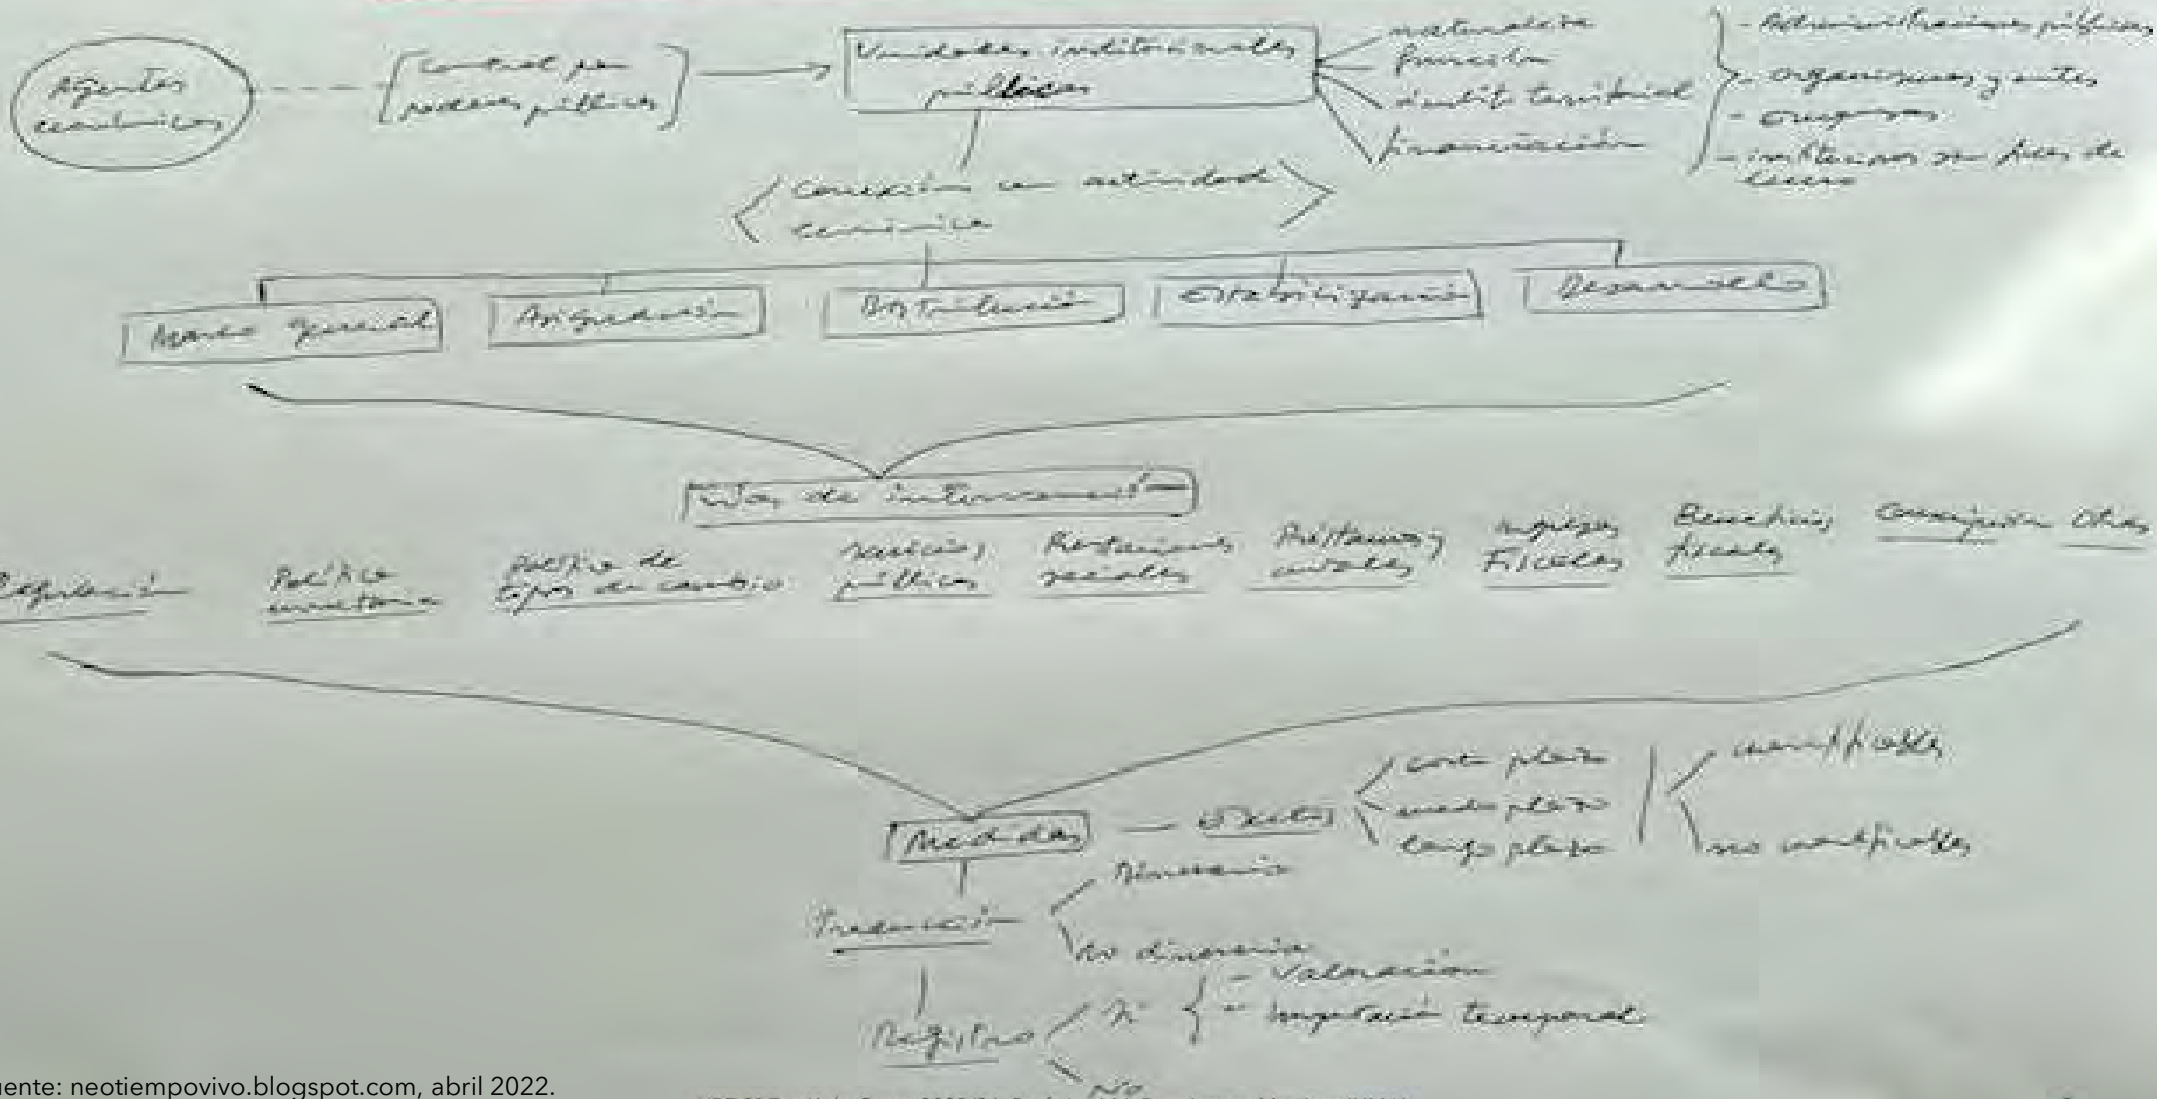 Agentes
económicos
Control por
poderes públicos
Unidades institucionales
públicas
naturaleza
función
ámbito territorial
financiación
- Administraciones públicas
- organismos y entes
- empresas
- instituciones sin fines de
lucro
Conexión con actividad
económica
Marco general
Asignación
Distribución
Estabilización
Desarrollo
Vías de intervención
Regulación
Política
monetaria
Política de
tipos de cambio
Servicios
públicos
Prestaciones
sociales
Préstamos y
avales
Ingresos
Fiscales
Beneficios
fiscales
Otras
Medidas
Efectos
corto plazo
medio plazo
largo plazo
cuantificables
no cuantificables
Traducción
Dineraria
No dineraria
Registro
Sí
- Valoración
- Imputación temporal
No
uente: neotiempovivo.blogspot.com, abril 2022.